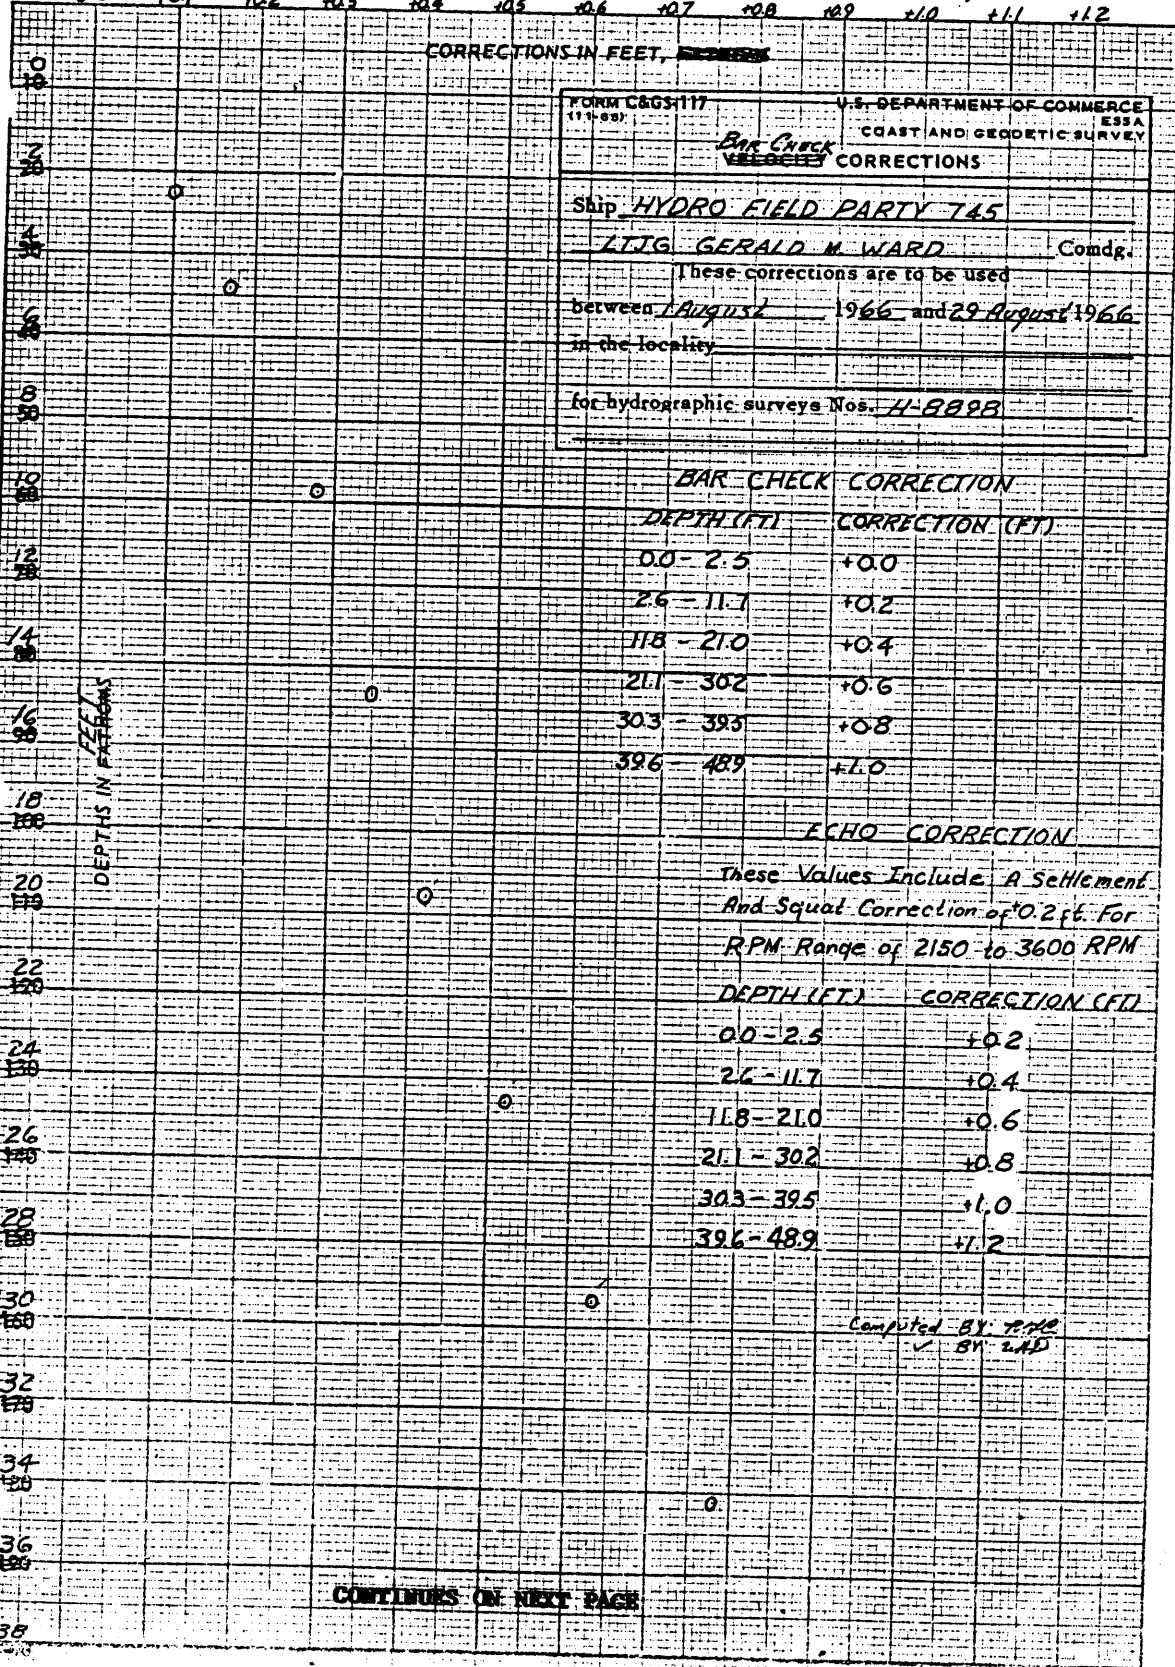 +0.2 +0.3 +0.4 +0.5 +0.6 +0.7 +0.8 +0.9 +1.0 +1.1 +1.2
CORRECTIONS IN FEET,
FORM C&GS-117
U.S. DEPARTMENT OF COMMERCE
ESSA
COAST AND GEODETIC SURVEY
BAR CHECK
VELOCITY CORRECTIONS
Ship HYDRO FIELD PARTY 745
LTJG GERALD M. WARD Comdg.
These corrections are to be used
between 1 August 1966 and 29 August 1966
in the locality
for hydrographic surveys Nos. H-8898
BAR CHECK CORRECTION
DEPTH (FT) CORRECTION (FT)
0.0 - 2.5 +0.0
2.6 - 11.7 +0.2
11.8 - 21.0 +0.4
21.1 - 30.2 +0.6
30.3 - 39.5 +0.8
39.6 - 48.9 +1.0
ECHO CORRECTION
These Values Include A Settlement
And Squat Correction of +0.2 ft. For
RPM Range of 2150 to 3600 RPM
DEPTH (FT.) CORRECTION (FT.)
0.0 - 2.5 +0.2
2.6 - 11.7 +0.4
11.8 - 21.0 +0.6
21.1 - 30.2 +0.8
30.3 - 39.5 +1.0
39.6 - 48.9 +1.2
Computed BY:
✓ BY: LAD
0
10
2
20
4
30
6
40
8
50
10
60
12
70
14
80
16
90
18
100
20
110
22
120
24
130
26
140
28
150
30
160
32
170
34
180
36
190
38
FEET
DEPTHS IN FATHOMS
CONTINUES ON NEXT PAGE